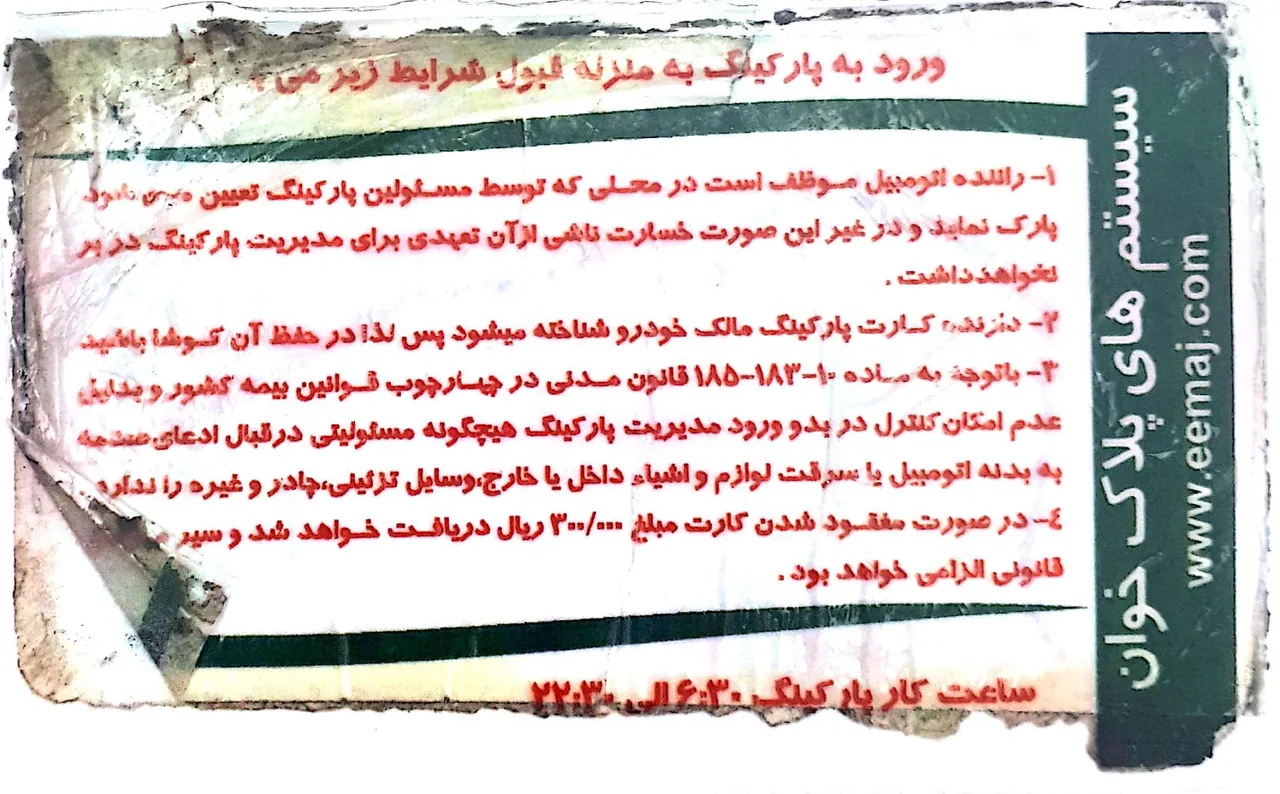 ورود به پارکینگ به منزله قبول شرایط زیر می
۱- راننده اتومبیل موظف است در محلی که توسط مسئولین پارکینگ تعیین می شود
پارک نماید و در غیر این صورت خسارت ناشی ازآن تعهدی برای مدیریت پارکینگ در بر
نخواهدداشت .
۲- دارنده کارت پارکینگ مالک خودرو شناخته میشود پس لذا در حفظ آن کوشا باشید
۳- باتوجه به ماده ۱۰-۱۸۳-۱۸۵ قانون مدنی در چهارچوب قوانین بیمه کشور و بدلیل
عدم امکان کنترل در بدو ورود مدیریت پارکینگ هیچگونه مسئولیتی درقبال ادعای صدمه
به بدنه اتومبیل یا سرقت لوازم و اشیاء داخل یا خارج،وسایل تزئینی،چادر و غیره را ندارد
۴- در صورت مفقود شدن کارت مبلغ ۳۰۰/۰۰۰ ریال دریافت خواهد شد و سیر
قانونی الزامی خواهد بود .
ساعت کار پارکینگ ۶:۳۰ الی ۲۲:۳۰
سیستم های پلاک خوان
www.eemaj.com